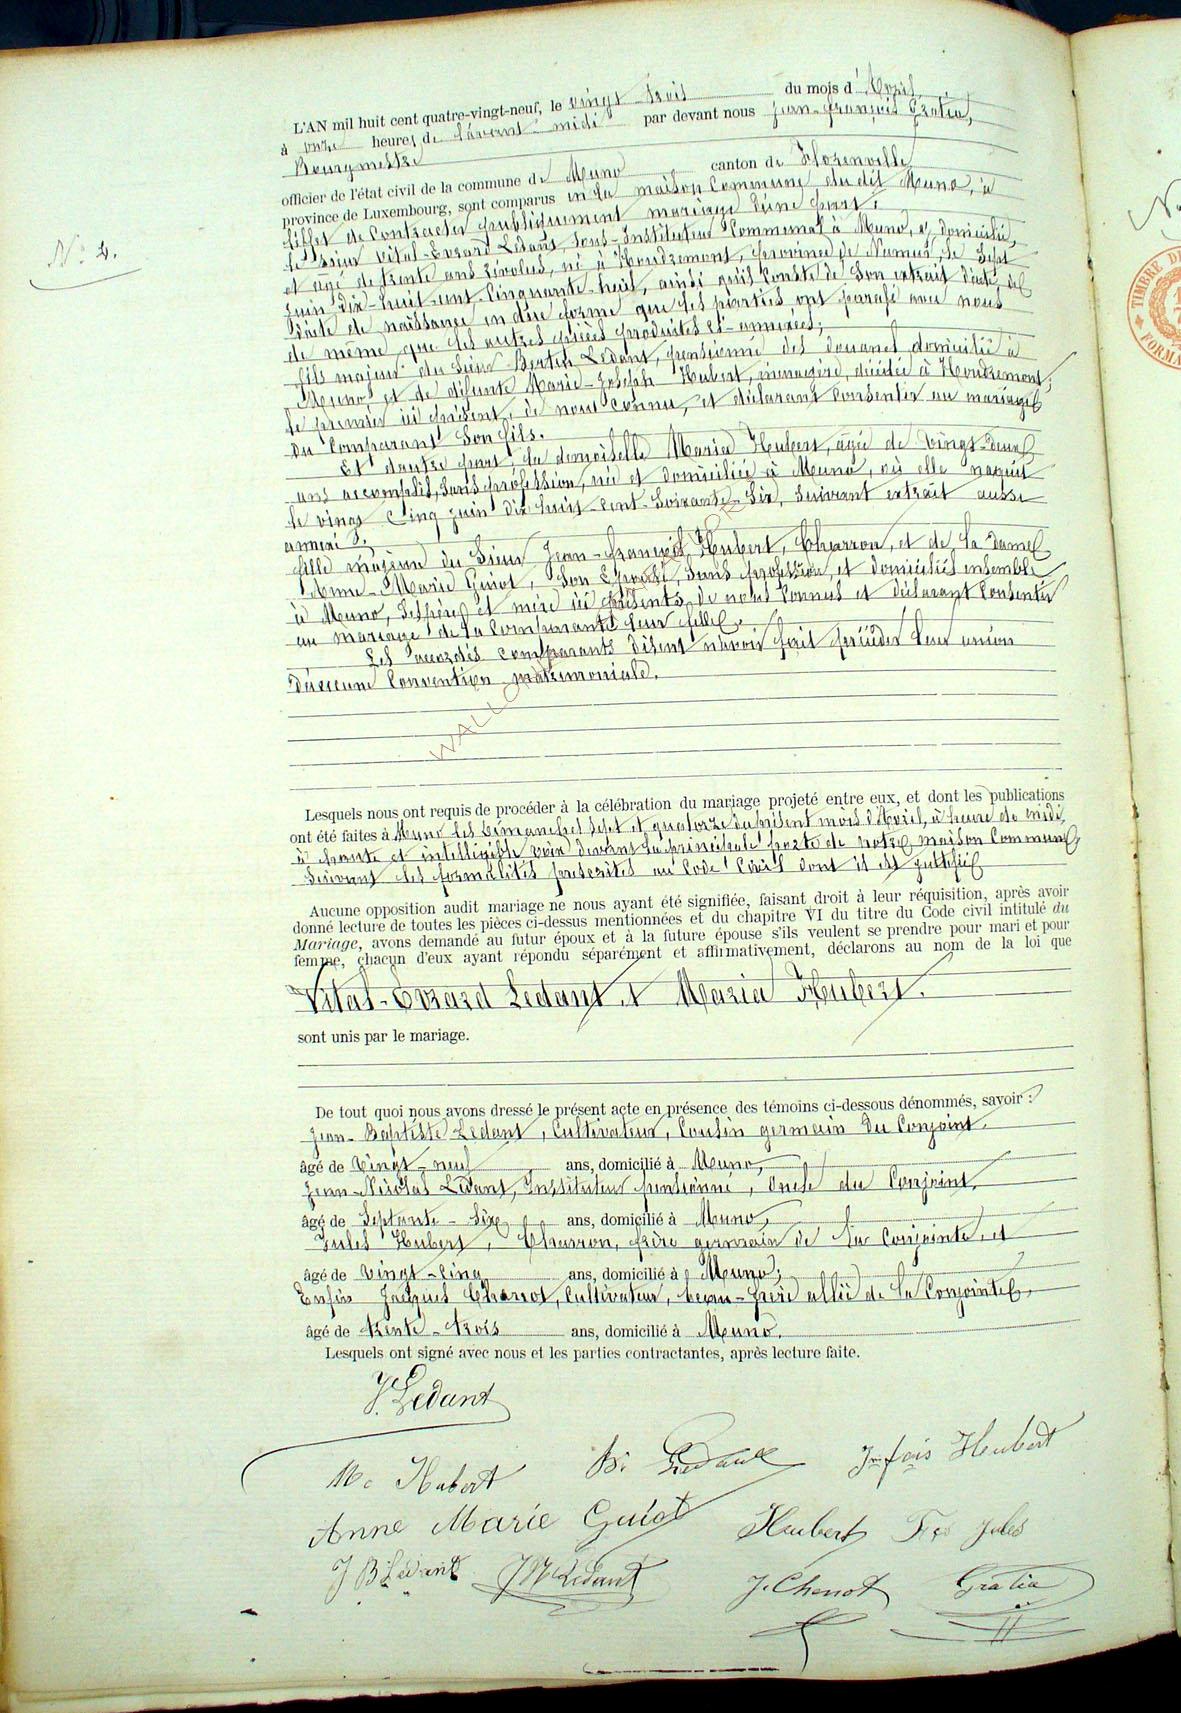 N° 4.
L'AN mil huit cent quatre-vingt-neuf, le vingt-trois du mois d'Avril,
à onze heures de l'avant-midi par devant nous Jean-François Gratia,
Bourgmestre
officier de l'état civil de la commune de Muno canton de Florenville
province de Luxembourg, sont comparus en la maison Commune du dit Muno, à
l'effet de Contracter publiquement mariage d'une part :
le sieur Vital-Evrard Ledant, sous-Instituteur Communal à Muno, y domicilié,
et âgé de trente ans révolus, né à Houdremont, province de Namur, le sept
Juin Dix-huit-cent-Cinquante-huit, ainsi qu'il Conste de Son extrait d'acte de
dicte de naissance en due forme que les parties ont parafé avec nous
de même que les autres pièces produites et annexées ;
fils majeur du Sieur Bertin Ledant, pensionné des douanes domicilié à
Muno et de défunte Marie-Joseph Hubert, ménagère, décédée à Houdremont ;
le premier ici présent, de nous Connu, et déclarant Consentir au mariage
du Comparant Son fils.
Et d'autre part, la demoiselle Maria Hubert, âgée de Vingt-Deux
ans accomplis, Sans profession, née et domiciliée à Muno, où elle naquit
le vingt-Cinq Juin Dix huit-Cent-Soixante-Six, Suivant extrait aussi
annexé ;
fille majeure du Sieur Jean-François Hubert, Charron, et de la Dame
Anne-Marie Guiot, Son Epouse, Sans profession, et domiciliés ensemble
à Muno, Ses père et mère ici présents, de nous Connus et déclarant Consentir
au mariage de la Comparante leur fille.
Les accordés Comparants disent n'avoir fait précéder leur union
D'aucune Convention matrimoniale.
Lesquels nous ont requis de procéder à la célébration du mariage projeté entre eux, et dont les publications
ont été faites à Muno les Dimanches sept et quatorze du présent mois d'Avril, à heure de midi,
à haute et intelligible voix devant la principale porte de notre maison Commune,
Suivant les formalités prescrites au Code Civil dont il est justifié
Aucune opposition audit mariage ne nous ayant été signifiée, faisant droit à leur réquisition, après avoir
donné lecture de toutes les pièces ci-dessus mentionnées et du chapitre VI du titre du Code civil intitulé du
Mariage, avons demandé au futur époux et à la future épouse s'ils veulent se prendre pour mari et pour
femme, chacun d'eux ayant répondu séparément et affirmativement, déclarons au nom de la loi que
Vital-Evrard Ledant et Maria Hubert.
sont unis par le mariage.
De tout quoi nous avons dressé le présent acte en présence des témoins ci-dessous dénommés, savoir :
Jean-Baptiste Ledant, Cultivateur, Cousin germain du Conjoint.
âgé de Vingt-neuf ans, domicilié à Muno,
Jean-Nicolas Ledant, Instituteur pensionné, Oncle du Conjoint,
âgé de Septante-Six ans, domicilié à Muno,
Jules Hubert, Charron, frère germain de la Conjointe, et
âgé de Vingt-cinq ans, domicilié à Muno ;
Enfin Jacques Chenot, Cultivateur, beau-frère allié de la Conjointe,
âgé de trente-trois ans, domicilié à Muno.
Lesquels ont signé avec nous et les parties contractantes, après lecture faite.
V. Ledant
Ma Hubert Bi Ledant Jn fois Hubert
Anne Marie Guiot Hubert Fçs Jules
J B Ledant J N Ledant J. Chenot Gratia
TIMBRE DE
FORMA